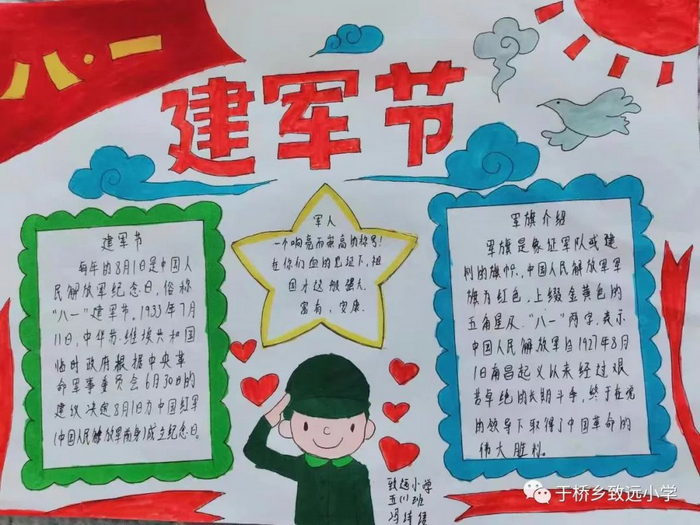 八·一
建军节
建军节
每年的8月1日是中国人
民解放军纪念日,俗称
“八一”建军节。1933年7月
11日,中华苏维埃共和国
临时政府根据中央革
命军事委员会6月30日的
建议决定8月1日为中国红军
(中国人民解放军前身)成立纪念日。
军人
一个响亮而崇高的称号!
在你们的下,祖
国才这般强大
富有,安康.
军旗介绍
军旗是象征军队或建
制的旗帜.中国人民解放军军
旗为红色,上缀金黄色的
五角星及“八一”两字,表示
中国人民解放军自1927年8月
1日南昌起义以来经过艰
苦卓绝的长期斗争,终于在党
的领导下取得了中国革命的
伟大胜利。
致远小学
五(1)班
冯
于桥乡致远小学